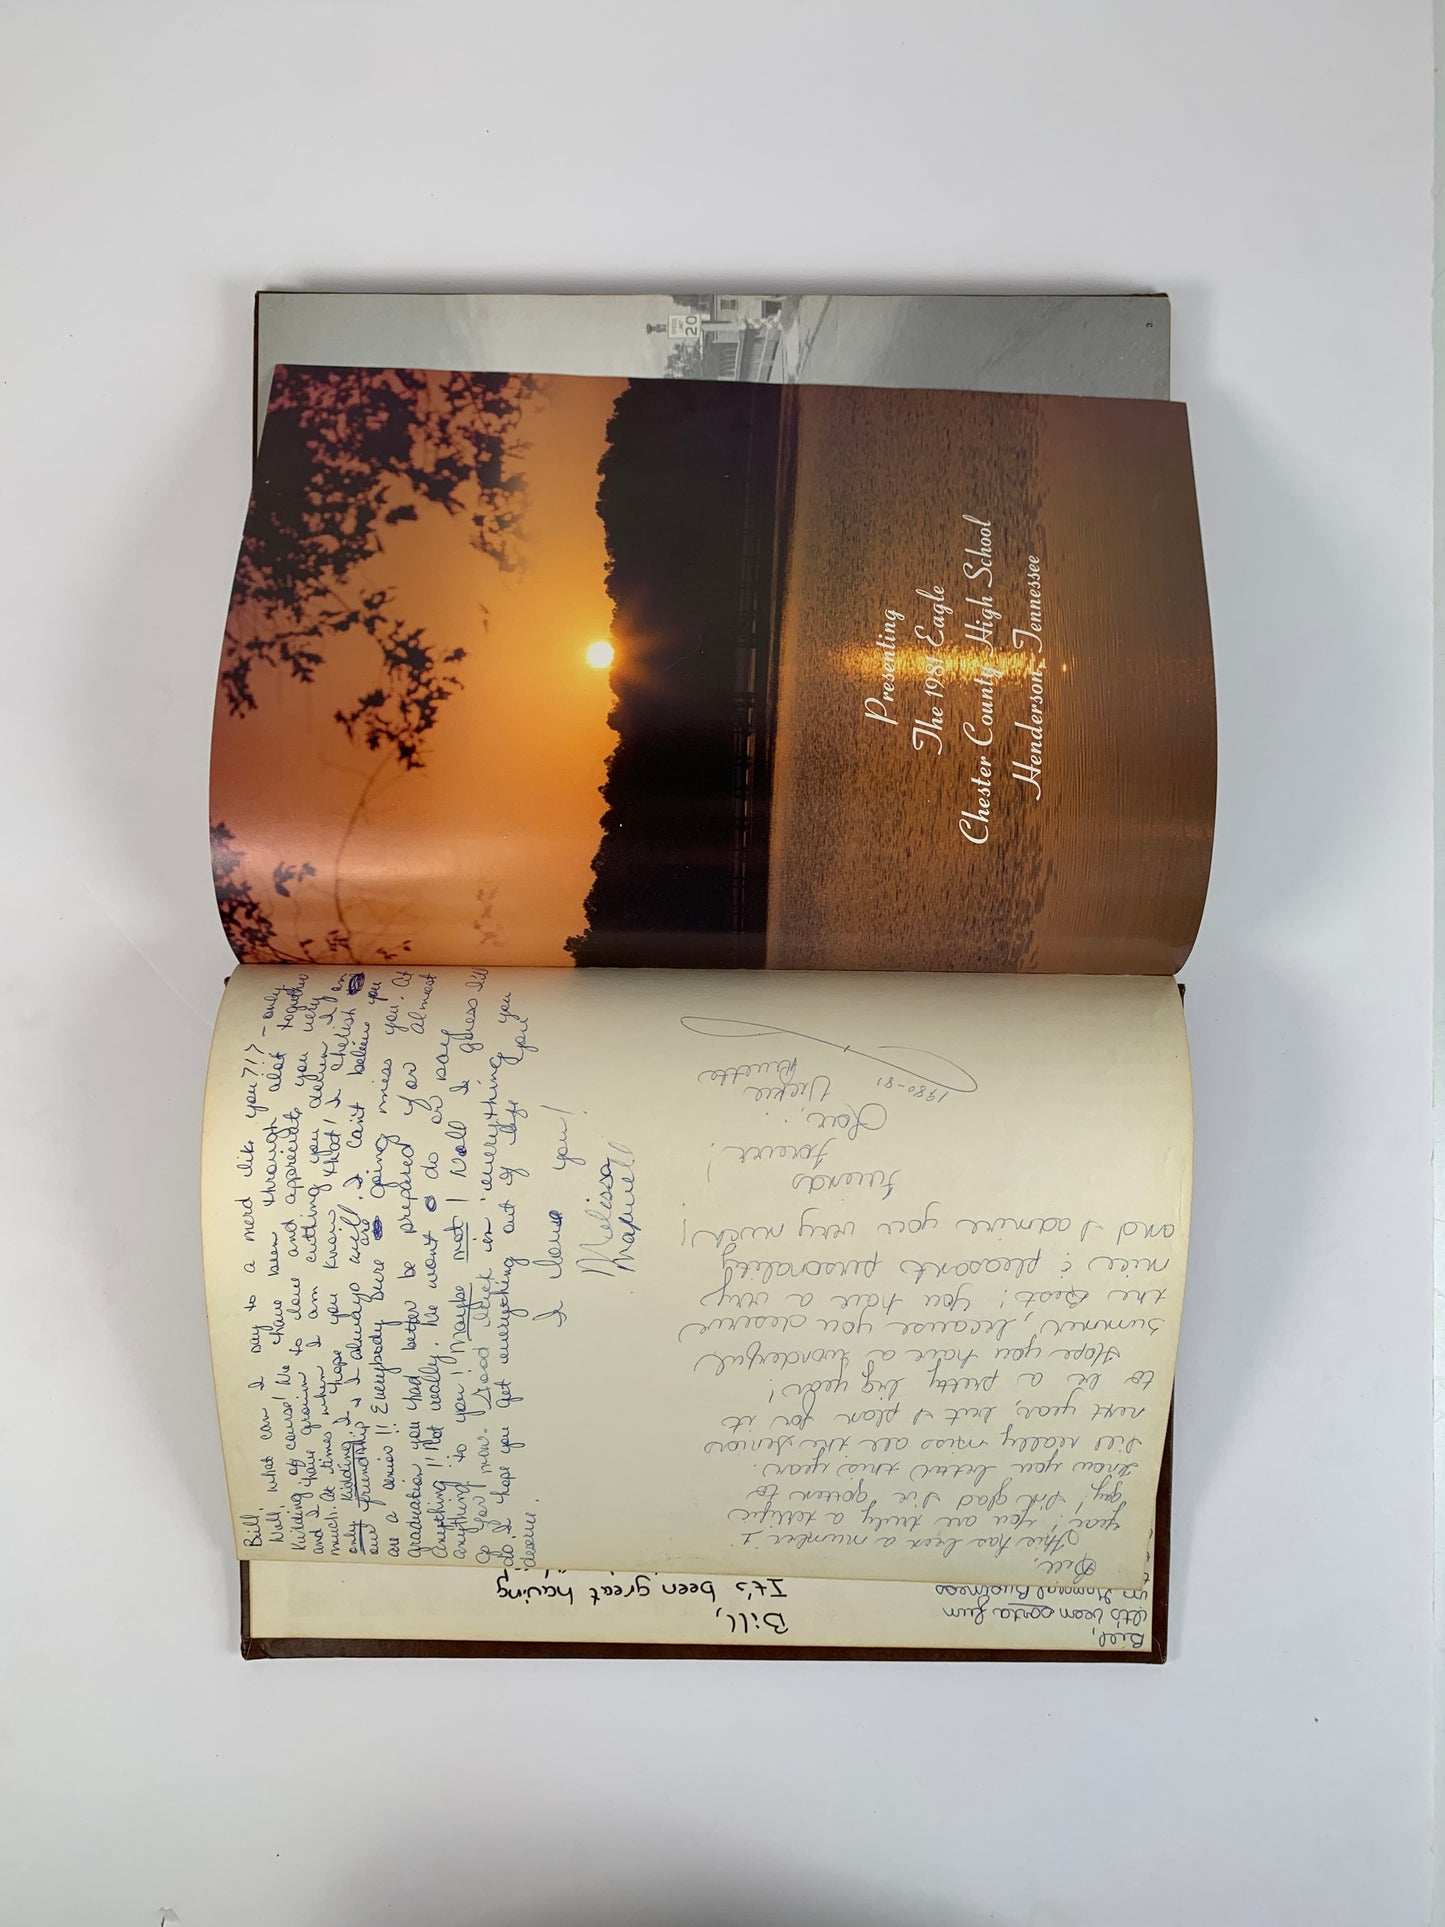 Bill,
Well, what can I say to a nerd like you?!? - only
kidding of course! We have been through alot together
and I have grown to love and appreciate you very
much. At times when I am cutting you down I am
only kidding; I hope you know that! I cherish
our friendship & I always will. I can't believe you
are a senior!! Everybody sure are going miss you. At
graduation you had better be prepared for almost
Anything!! Not really. We wont do or say
anything to you! Maybe not! Well I guess I'll
go for now. Good luck in everything you
do. I hope you get everything out of life you
deserve.
I love you!
Melissa
Bill,
This has been a number 1
year! You are truly a terrific
guy! I'm glad I've gotten to
know you better this year.
I'll really miss all the seniors
next year, but I plan for it
to be a pretty big year!
Hope you have a wonderful
summer, because you deserve
the Best! You have a very
nice & pleasant personality
and I admire you very much!
Friends
forever!
Love,
Vickie
1980-81
Bill,
It's been great having
Bill,
It's been sorta fun
in General Business
Presenting
The 1981 Eagle
Chester County High School
Henderson, Tennessee
SPEED
LIMIT
20
3